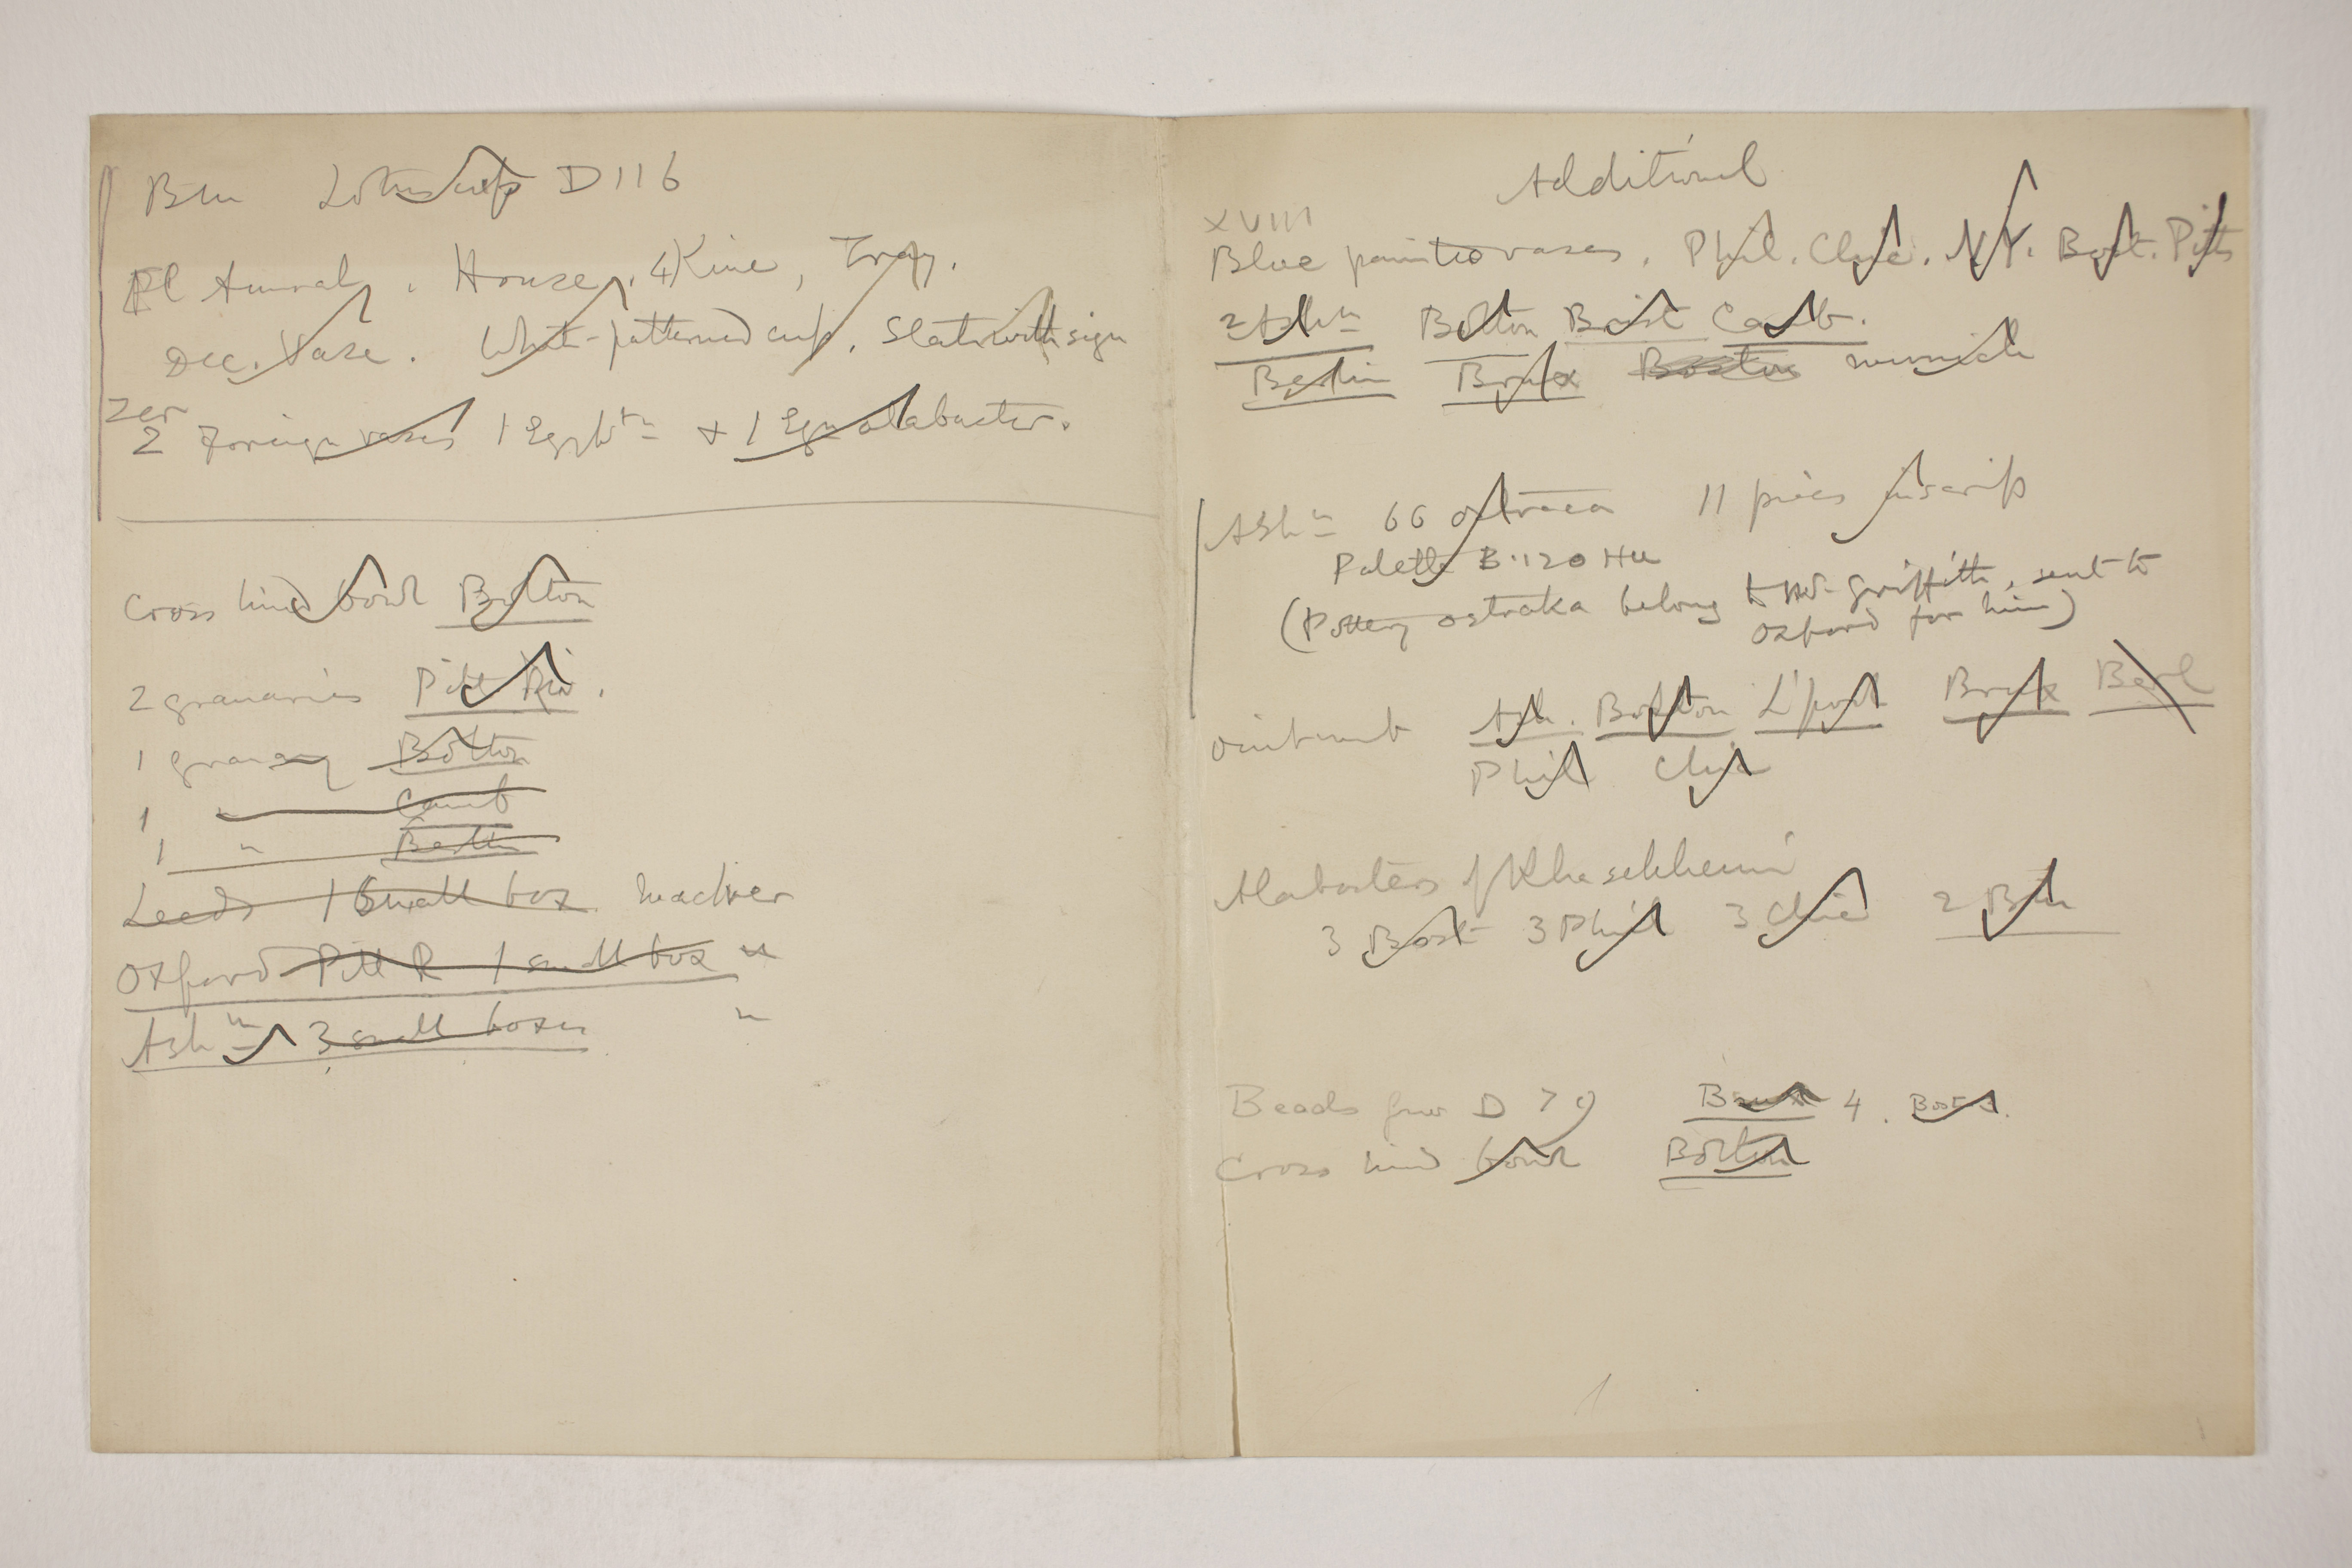 Bm Lotus cup D116
El Amrah. House, 4 Kine, Tray.
Dec. Vase. White-patterned cup, Slate with sign
Zer
2 Foreign vases 1 Egyptn + 1 Egn alabaster.
Cross lined bowl Bolton
2 granaries Pitt Riv.
1 granary Bolton
1 " Camb
1 " Berlin
Leeds 1 Small box MacIver
Oxford Pitt R 1 small box "
Ashn 3 small boxes "
Additional
XVIII
Blue painted vases. Phil. Chic. N.Y. Bost. Pitts
2 Ashn Bolton Brist Camb.
Berlin Brux Boston Munich
Ashn 66 ostraca 11 pieces inscrip
Palette B 120 Hu
(Pottery ostraka belong to Mr Griffith, sent to
Oxford for him)
Ointment Ash. Bolton L'pool Brux Berl
Phil Chic
Alabasters of Khasekhemui
3 Bost 3 Phil 3 Chic 2 Bm
Beads from D 79 Brux 4. Bost.
Cross lined bowl Bolton